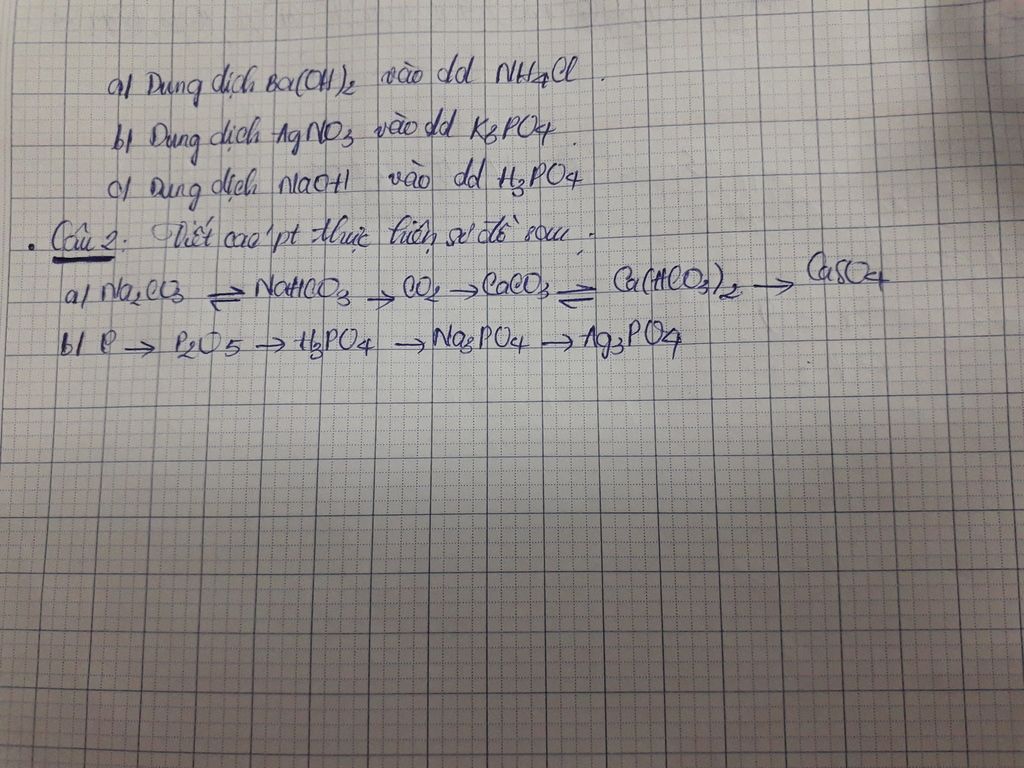 a) Dung dịch Ba(OH)2 vào dd NH4Cl.
b) Dung dịch AgNO3 vào dd K3PO4.
c) Dung dịch NaOH vào dd H3PO4
. Câu 2: Viết các pt thực hiện sơ đồ sau:
a) Na2CO3 ⇌ NaHCO3 → CO2 → CaCO3 ⇌ Ca(HCO3)2 → CaSO4
b) P → P2O5 → H3PO4 → Na3PO4 → Ag3PO4